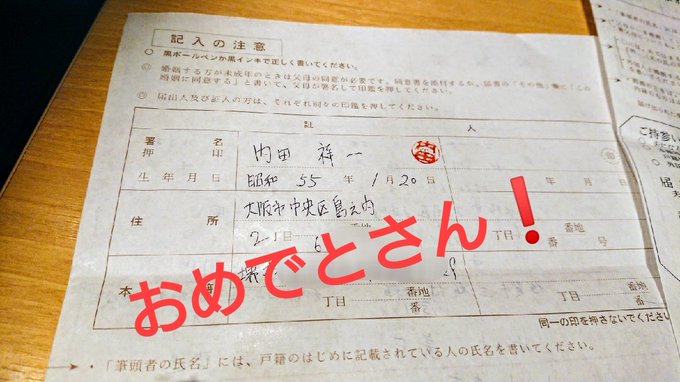 記入の注意
○ 黒ボールペンか黒インキで正しく書いてください。
◎ 婚姻する方が未成年のときは父母の同意が必要です。同意書を添付するか、届書の「その他」欄に「この
婚姻に同意する」と書いて、父母が署名して印鑑を押してください。
届出人及び証人の方は、それぞれ別々の印鑑を押してください。
証 人
署名
押印
内田 祥一
内田
印
生年月日
昭和 55 年 1 月 20 日
年 月 日
住所
大阪市中央区島之内
2 丁目 6
番地
丁目
番地
番 号
おめでとさん！
本
堺
29
丁目
番地
番
丁目
番地
番
同一の印を押さないでくださ
・「筆頭者の氏名」には、戸籍のはじめに記載されている人の氏名を書いてください。
ご持参い
届